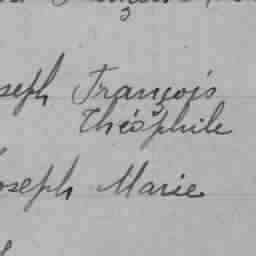 Joseph François
Théophile
Joseph Marie